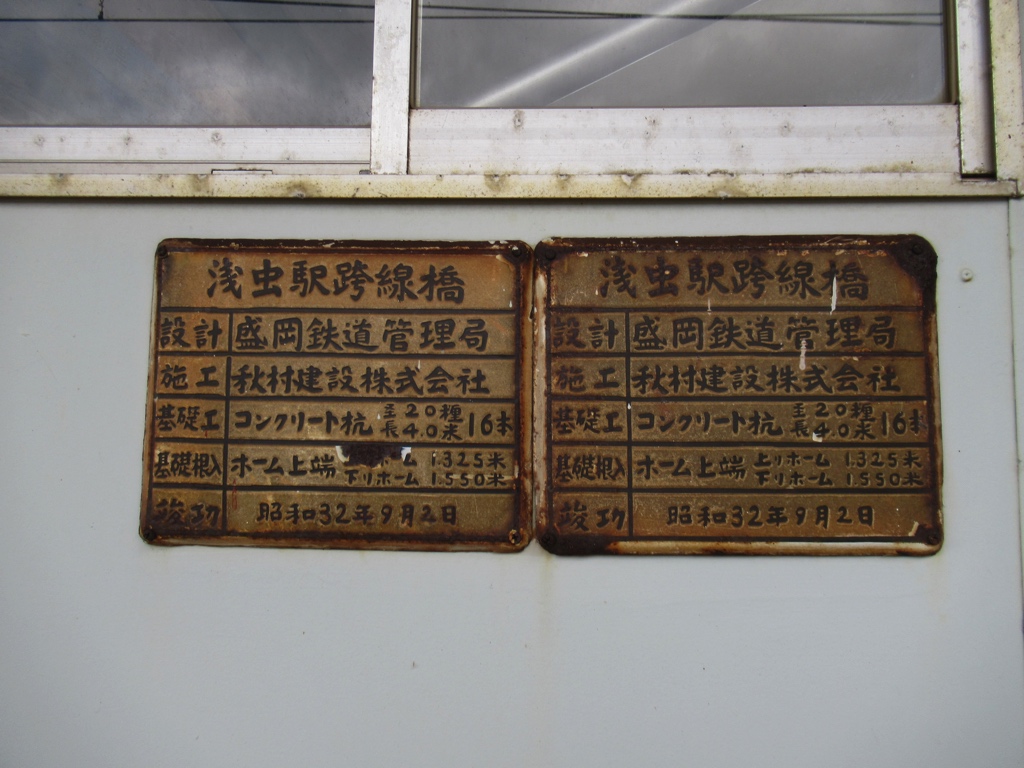 浅虫駅跨線橋
設計 盛岡鉄道管理局
施工 秋村建設株式会社
基礎工 コンクリート杭 主20種 長4.0米 16本
基礎根入 ホーム上端 ーム 1.325米
下リホーム 1.550米
竣功 昭和32年9月2日
浅虫駅跨線橋
設計 盛岡鉄道管理局
施工 秋村建設株式会社
基礎工 コンクリート杭 主20種 長4.0米 16本
基礎根入 ホーム上端 上リホーム 1.325米
下リホーム 1.550米
竣功 昭和32年9月2日